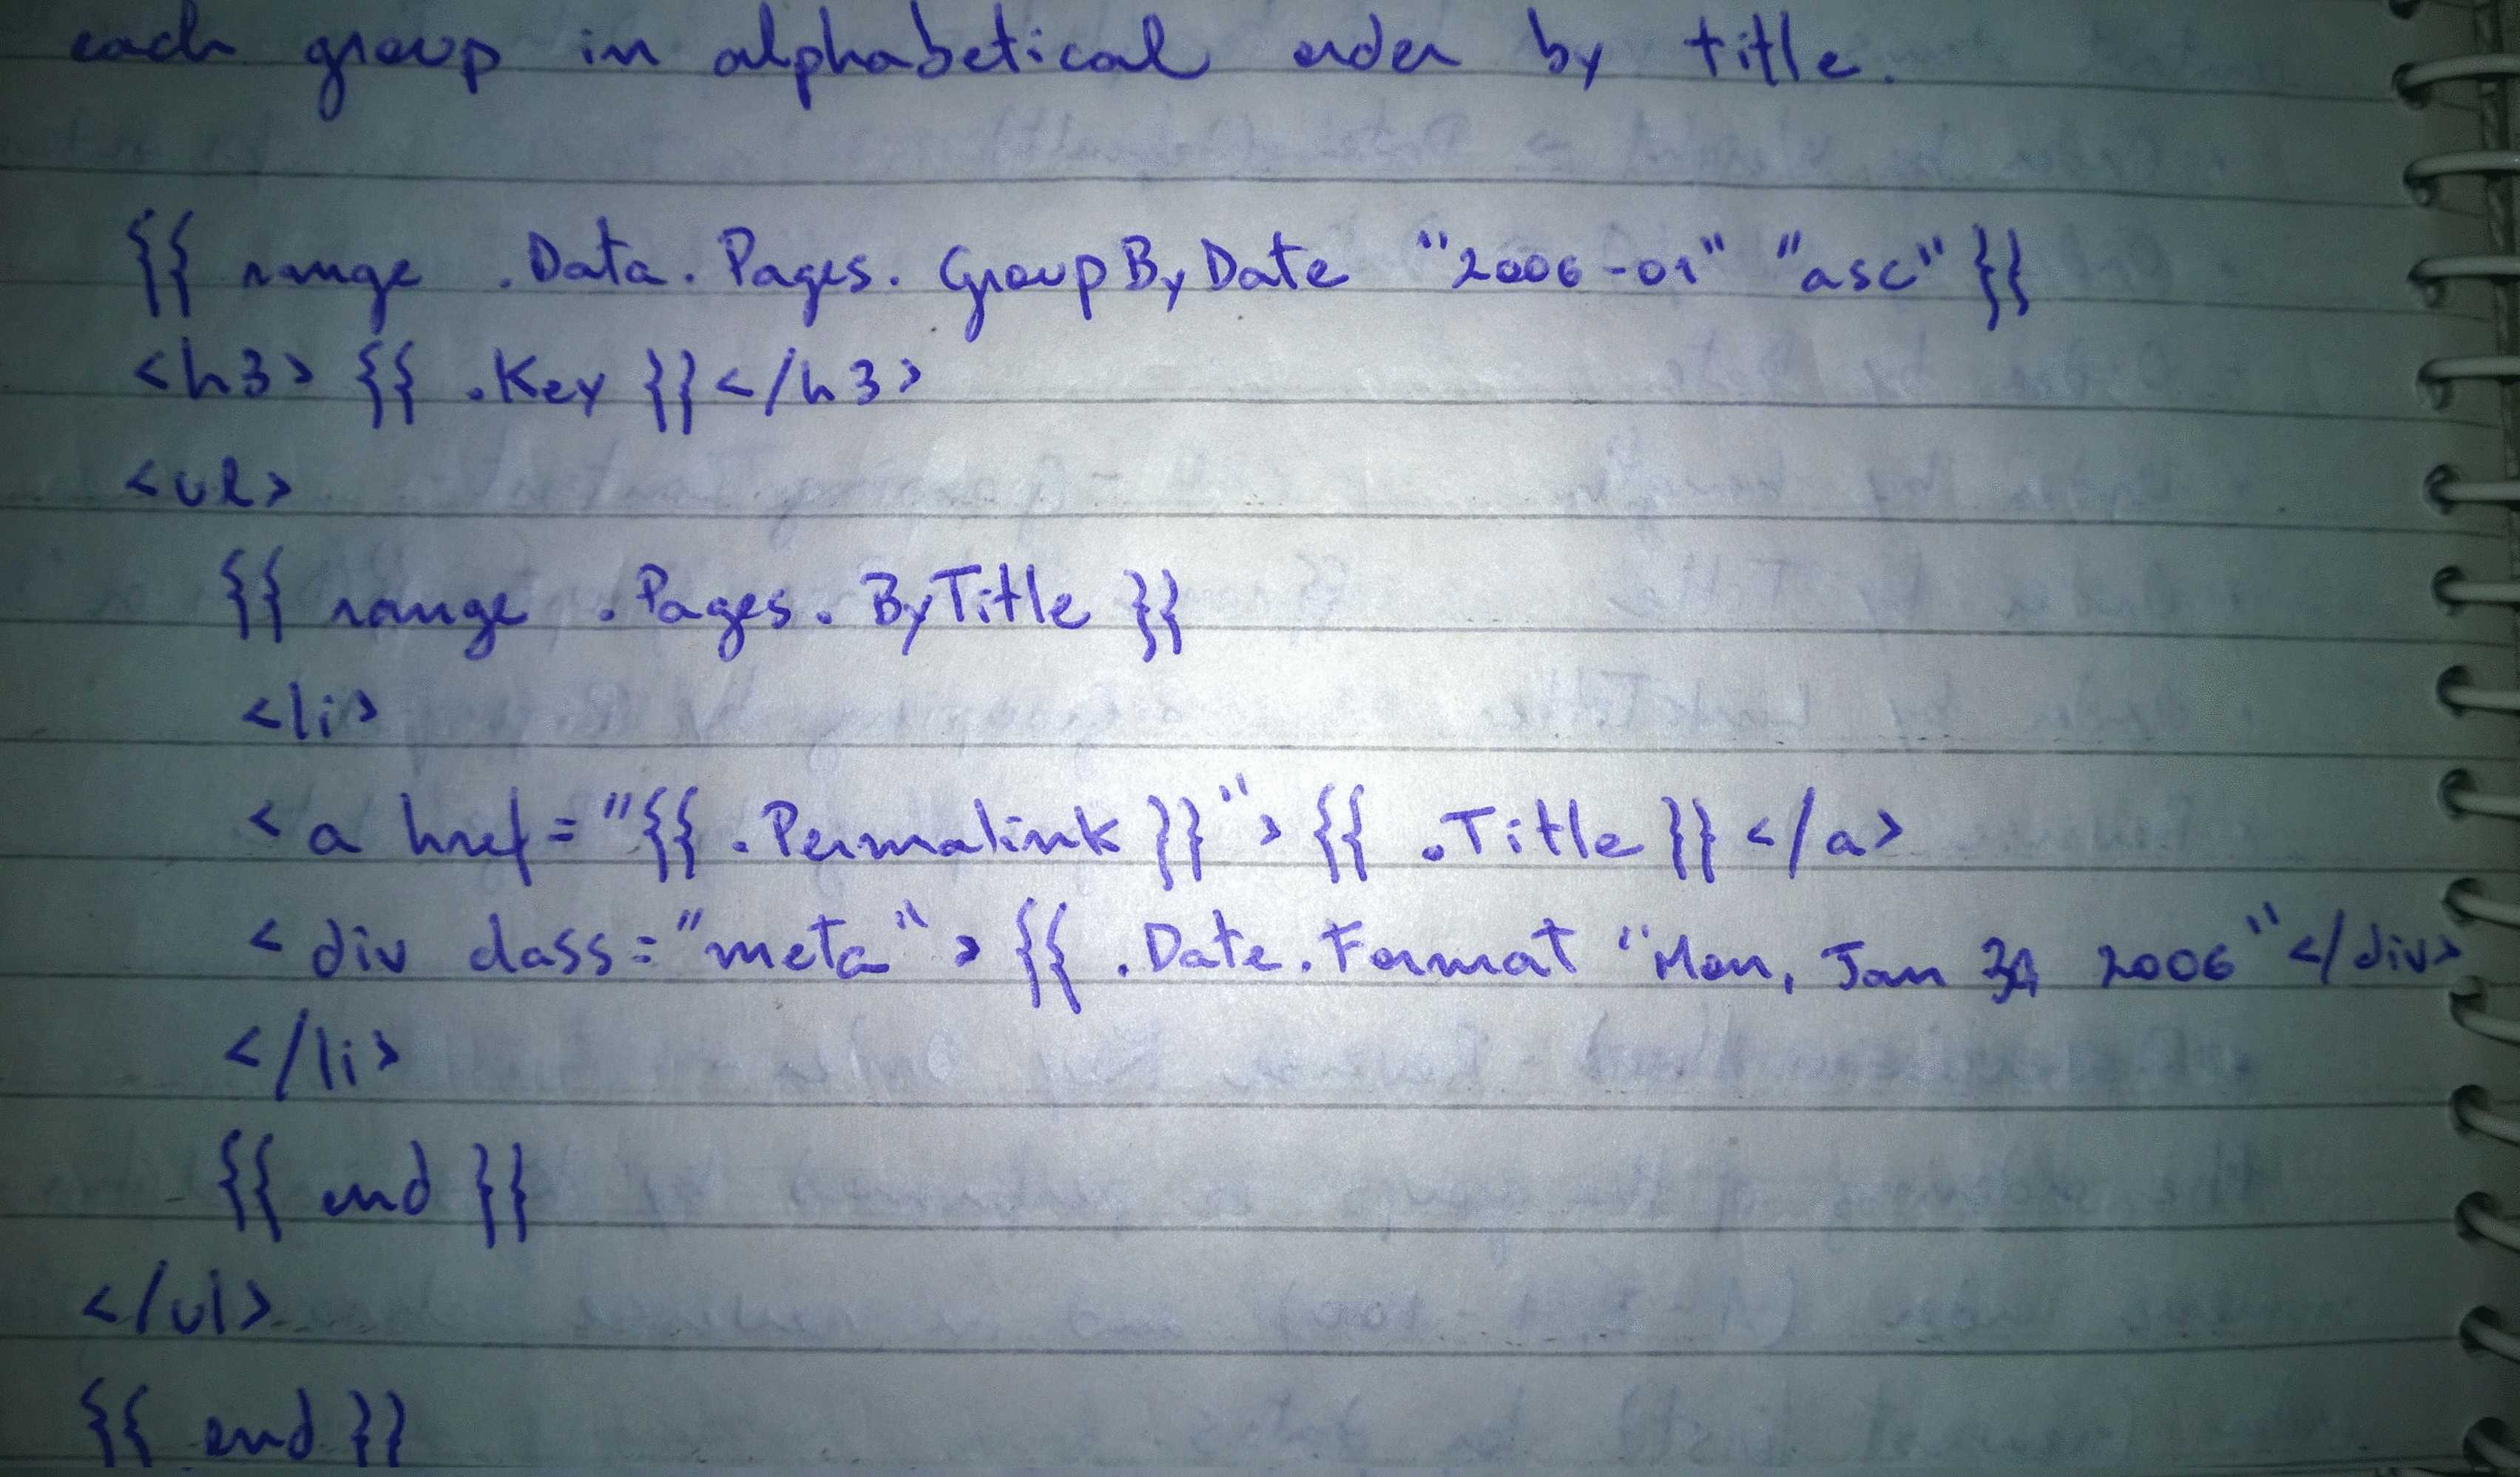 each group in alphabetical order by title.
{{ range .Data.Pages.GroupByDate "2006-01" "asc" }}
<h3> {{ .Key }}</h3>
<ul>
{{ range .Pages.ByTitle }}
<li>
<a href="{{ .Permalink }}"> {{ .Title }}</a>
<div class="meta"> {{ .Date.Format "Mon, Jan 2006"</div>
</li>
{{ end }}
</ul>
{{ end }}